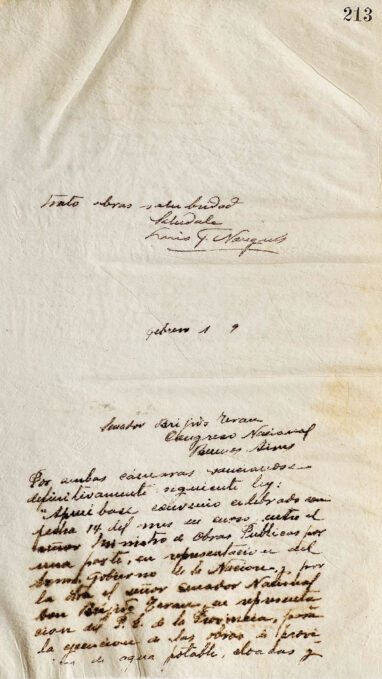 213
Trato obras salubridad
Saludale
Luis F. Nougués
Febrero 1 9
Senador Brijido Teran
Congreso Nacional
Buenos Aires
Por ambas cámaras sancionose
definitivamente siguiente ley:
"Apruebase convenio celebrado con
fecha 14 del mes en curso entre el
Señor Ministro de Obras Publicas por
una parte, en representacion del
Exmo. Gobierno de la Nacion y por
la otra el señor Senador Nacional
Don Brijido Teran en representa
cion del P. E. de la Provincia, para
la ejecucion de las obras de provi
de agua potable, cloacas y